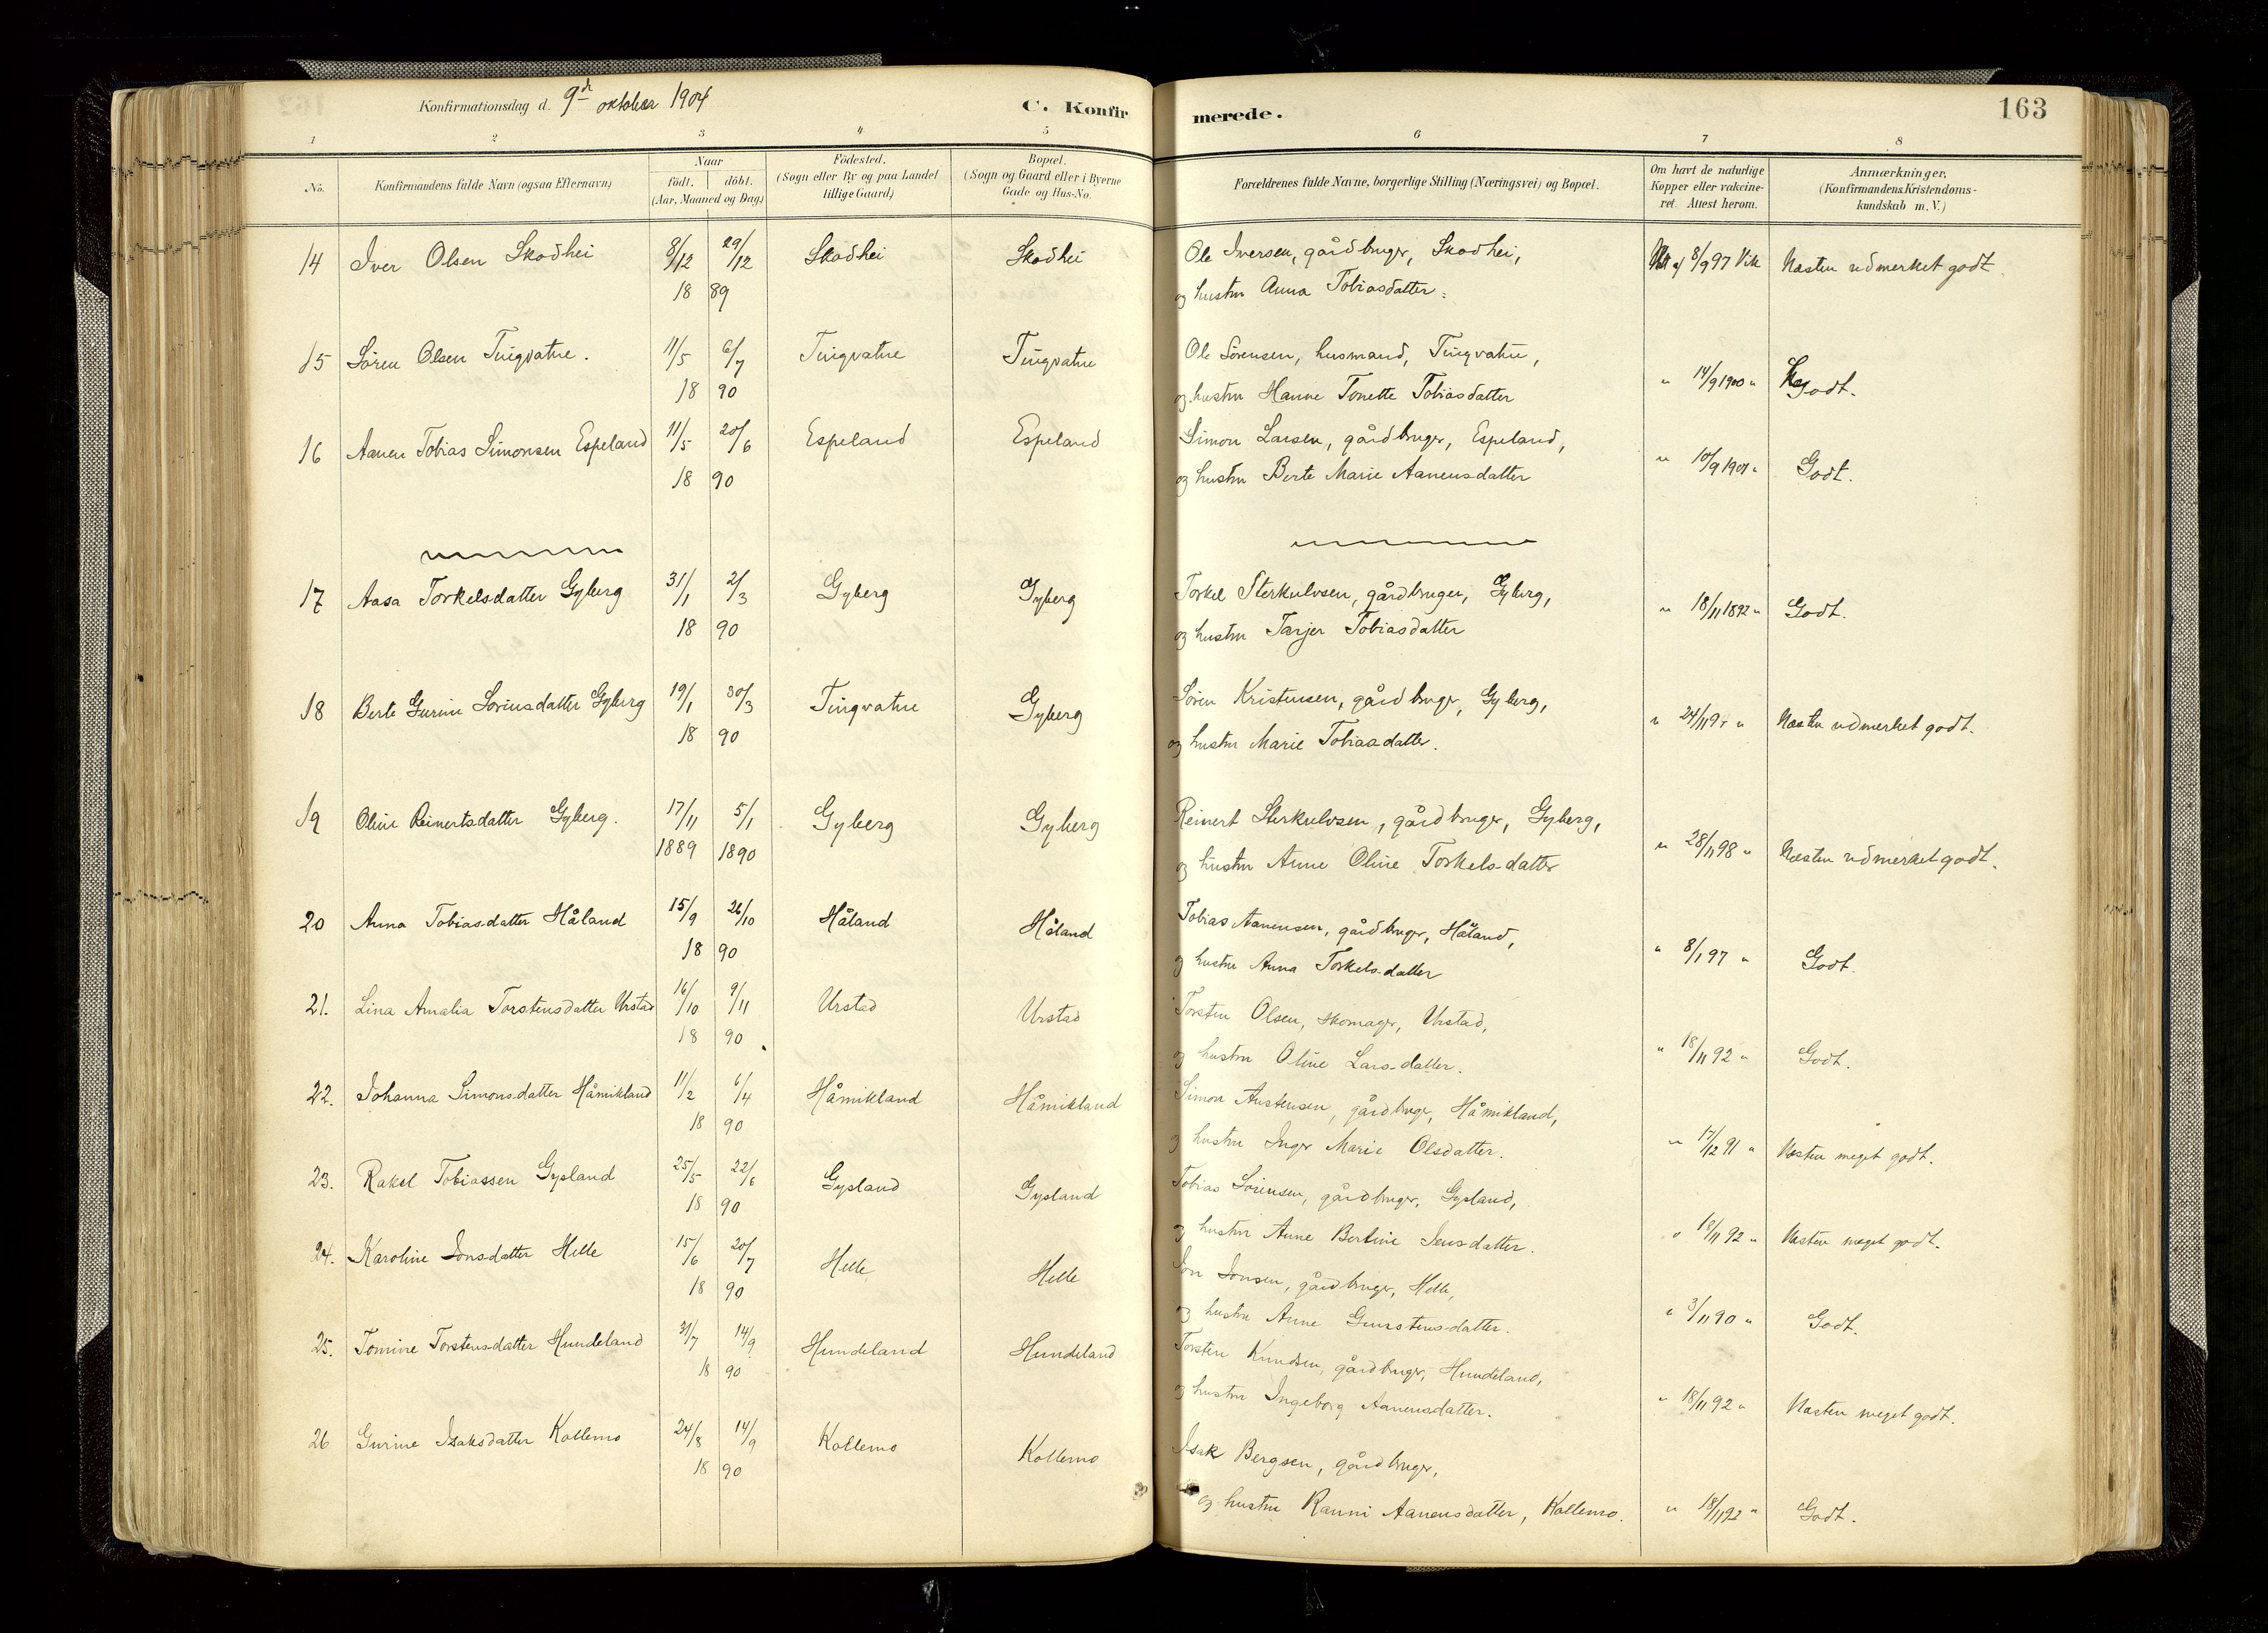 Konfirmationsdag d. 9de oktober 1904
C. Konfirmerede.
163
1 2 3 4 5 6 7 8
No. Konfirmandens fulde Navn (ogsaa Efternavn) Naar født. døbt. (Aar, Maaned og Dag) Fødested. (Sogn eller By og paa Landet tillige Gaard) Bopæl. (Sogn og Gaard eller i Byerne Gade og Hus-No. Forældrenes fulde Navne, borgerlige Stilling (Næringsvei) og Bopæl. Om havt de naturlige Kopper eller vakcineret. Attest herom. Anmærkninger, (Konfirmandens Kristendomskundskab m. V.)
14 Iver Olsen Skodhei 8/12 29/12 Skodhei Skodhei Ole Iversen, gårdbruger, Skodhei, 8/9 97 Vik Næsten udmerket godt
18 89 og hustru Anna Tobiasdatter.
15 Sören Olsen Tingvatne. 11/5 6/7 Tingvatne Tingvatne Ole Sörensen, husmand, Tingvatne,
18 90 og hustru Hanne Tonette Tobiasdatter " 14/9 1900 " Godt.
16 Aanen Tobias Simonsen Espeland 11/5 20/6 Espeland Espeland Simon Larsen, gårdbruger, Espeland,
18 90 og hustru Berte Marie Aanensdatter " 10/9 1901 " Godt.
17 Aasa Torkelsdatter Gyberg 31/1 2/3 Gyberg Gyberg Torkel Sterkulvsen, gårdbruger, Gyberg, " 18/11 1892 " Godt.
18 90 og hustru Tarjer Tobiasdatter
18 Berte Gurine Sörensdatter Gyberg 19/1 30/3 Tingvatne Gyberg Sören Kristensen, gårdbruger, Gyberg,
18 90 og hustru Marie Tobiasdatter. Næsten udmerket godt.
19 Oline Reinertsdatter Gyberg. 17/11 5/1 Gyberg Gyberg Reinert Sterkulvsen, gårdbruger, Gyberg,
1889 1890 og hustru Anne Oline Torkelsdatter " 28/11 98 " Næsten udmerket godt.
20 Anna Tobiasdatter Håland 15/9 26/10 Håland Håland Tobias Aanensen, gårdbruger, Håland,
18 90 og hustru Anna Torkelsdatter " 8/1 97 " Godt.
21. Lina Amalia Torstensdatter Urstad 16/10 9/11 Urstad Urstad Torsten Olsen, skomager, Urstad,
18 90 og hustru Oline Larsdatter. " 18/11 92 " Godt.
22. Johanna Simonsdatter Håmikland 11/2 6/4 Håmikland Håmikland Simon Austensen, gårdbruger, Håmikland,
18 90 og hustru Inger Marie Olsdatter. " 17/12 91 " Næsten meget godt.
23. Rakel Tobiassen Gysland 25/5 22/6 Gysland Gysland Tobias Sörensen, gårdbruger, Gysland,
18 90 og hustru Anne Bertine Jensdatter. " 18/11 92 " Næsten meget godt.
24. Karoline Jonsdatter Helle 15/6 20/7 Helle Helle Jon Jonsen, gårdbruger, Helle,
18 90 og hustru Anne Gunstensdatter. " 3/11 90 " Godt.
25. Tomine Torstensdatter Hundeland 31/7 14/9 Hundeland Hundeland Torsten Knudsen, gårdbruger, Hundeland,
18 90 og hustru Ingeborg Aanensdatter. " 18/11 92 " Næsten meget godt.
26 Gurine Isaksdatter Kollemo 24/8 14/9 Kollemo Kollemo Isak Bergsen, gårdbruger,
18 90 og hustru Ranni Aanensdatter, Kollemo. " 18/11 92 " Godt.